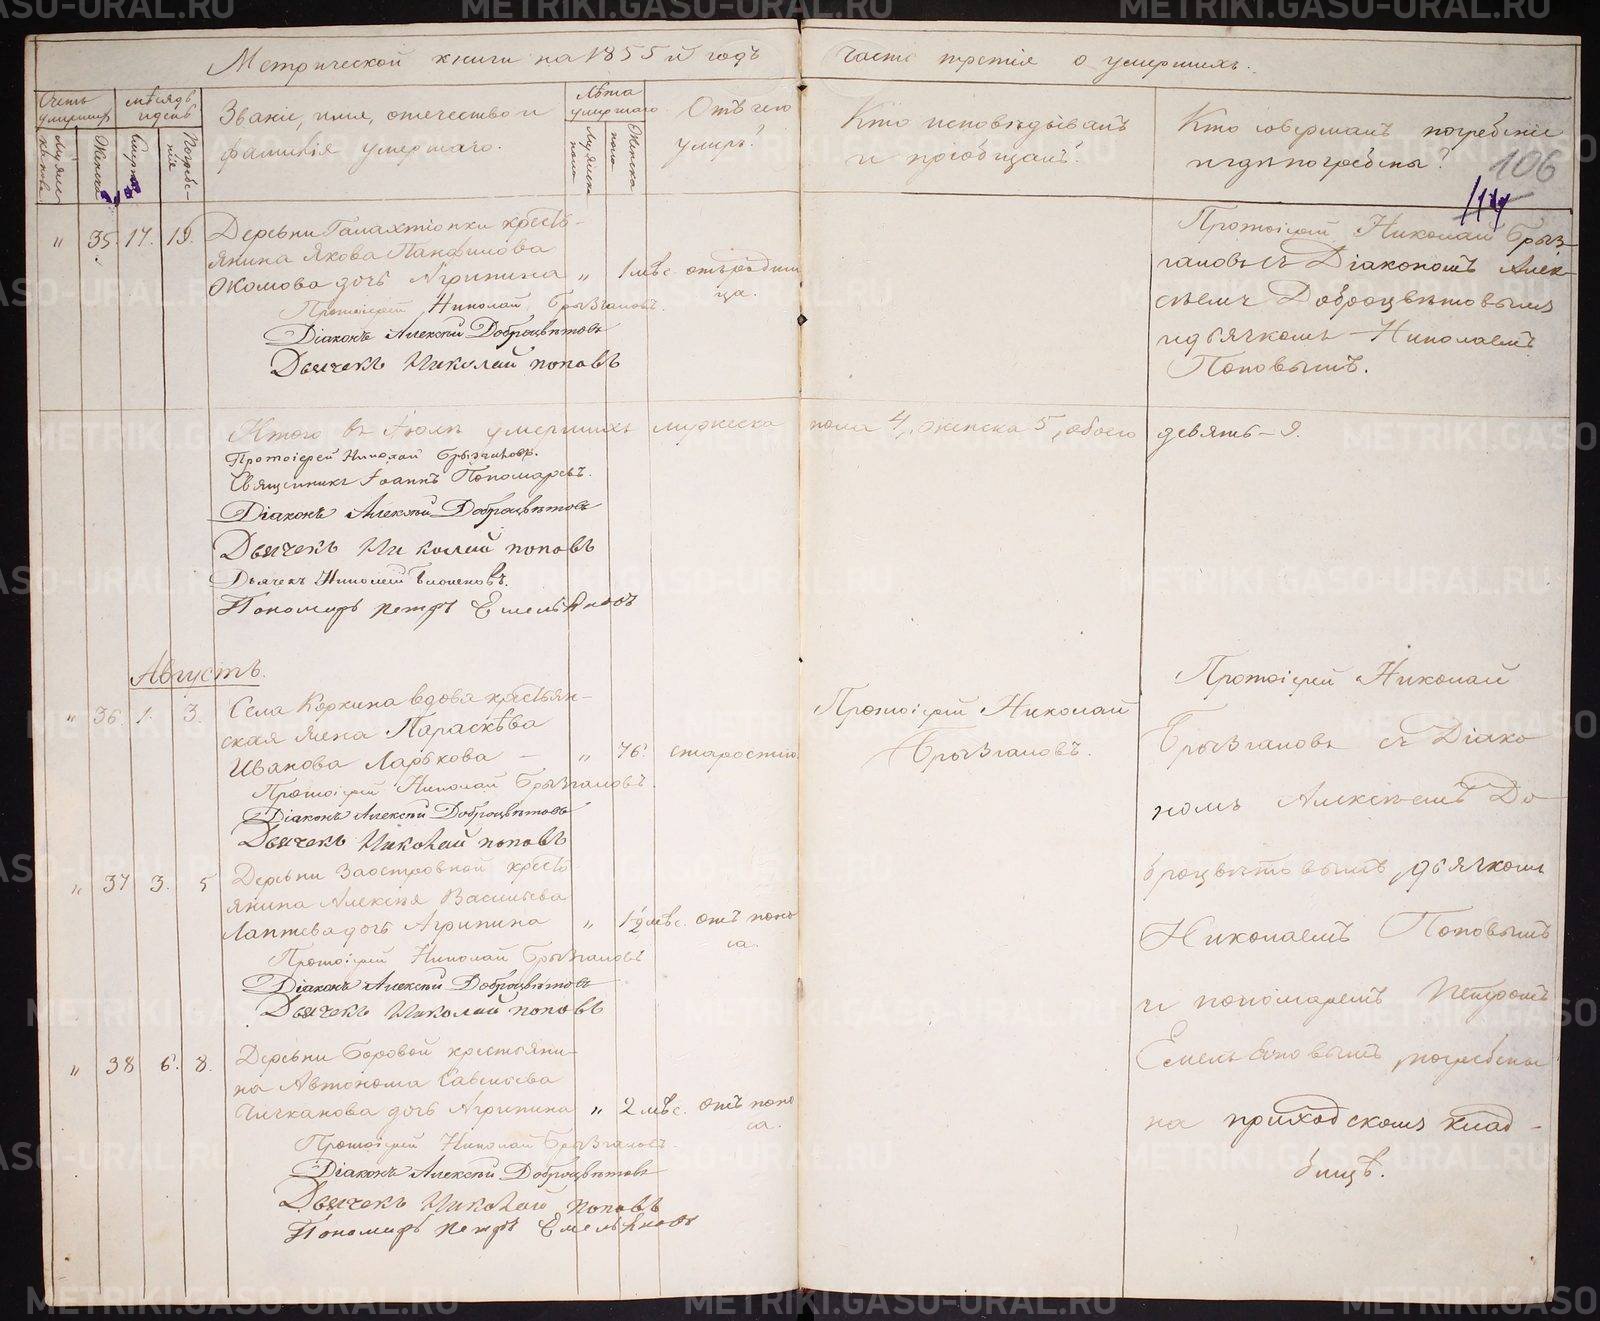 Метрической книги на 1855й годъ часть третія о умершихъ.
Счетъ умершихъ
мѣсяцъ и день
Званіе, имя, отечество и фамилія умершаго.
Лѣта умершаго
Отъ чего умеръ?
Кто исповѣдывалъ и пріобщалъ?
Кто совершалъ погребеніе и гдѣ погребены?
106
114
Женска
Смерти
Погребенія
Мужеска пола
Женска пола
" 35. 17. 19. Деревни Галахтіонки кресть-
янина Якова Панфилова
дочь Агрипина " 1 мѣс. отъ родим
ца.
Протоіерей Николай Брызгаловъ.
Діаконъ Алексѣй Доброцвѣтовъ
Дьячекъ Николай поповъ
Протоіерей Николай Брыз-
галовъ съ Діакономъ Алек-
сѣемъ Доброцвѣтовымъ
и дьячкомъ Николаемъ
Поповымъ.
Итого въ Іюлѣ умершихъ мужеска пола 4, женска 5, обоего девять – 9.
Протоіерей Николай Брызгаловъ.
Священникъ Іоаннъ Пономаревъ.
Діаконъ Алексѣй Доброцвѣтовъ
Дьячекъ Николай поповъ
Дьячекъ Николай
Пономарь петръ Емельяновъ
Августъ.
" 36. 1. 3. Села Кяркина вдова крестьян-
ская жена Параскѣва
Иванова Ларькова – " 76. старостію
Протоіерей Николай Брызгаловъ.
Діаконъ Алексѣй Доброцвѣтовъ
Дьячекъ Николай поповъ
Протоіерей Николай
Брызгаловъ.
" 37 3. 5 Деревни Заостровной кресть-
янина Алексѣя Васильева
Лаптева дочь Агрипина " 1½ мѣс. отъ поно
са.
Протоіерей Николай Брызгаловъ
Діаконъ Алексѣй Доброцвѣтовъ
Дьячекъ Николай поповъ
" 38 6. 8. Деревни Боровой крестьяни-
на Автонома Савельева
Чичканова дочь Агрипина " 2 мѣс. отъ поно
са.
Протоіерей Николай Брызгаловъ.
Діаконъ Алексѣй Доброцвѣтовъ
Дьячекъ Николай поповъ
Пономарь петръ Емельяновъ
Протоіерей Николай
Брызгаловъ съ Діако
номъ Алексѣемъ До
броцвѣтовымъ, дьячкомъ
Николаемъ Поповымъ
и пономаремъ Петромъ
Емельяновымъ, погребены
на приходскомъ клад-
бищѣ.
METRIKI.GASO-URAL.RU